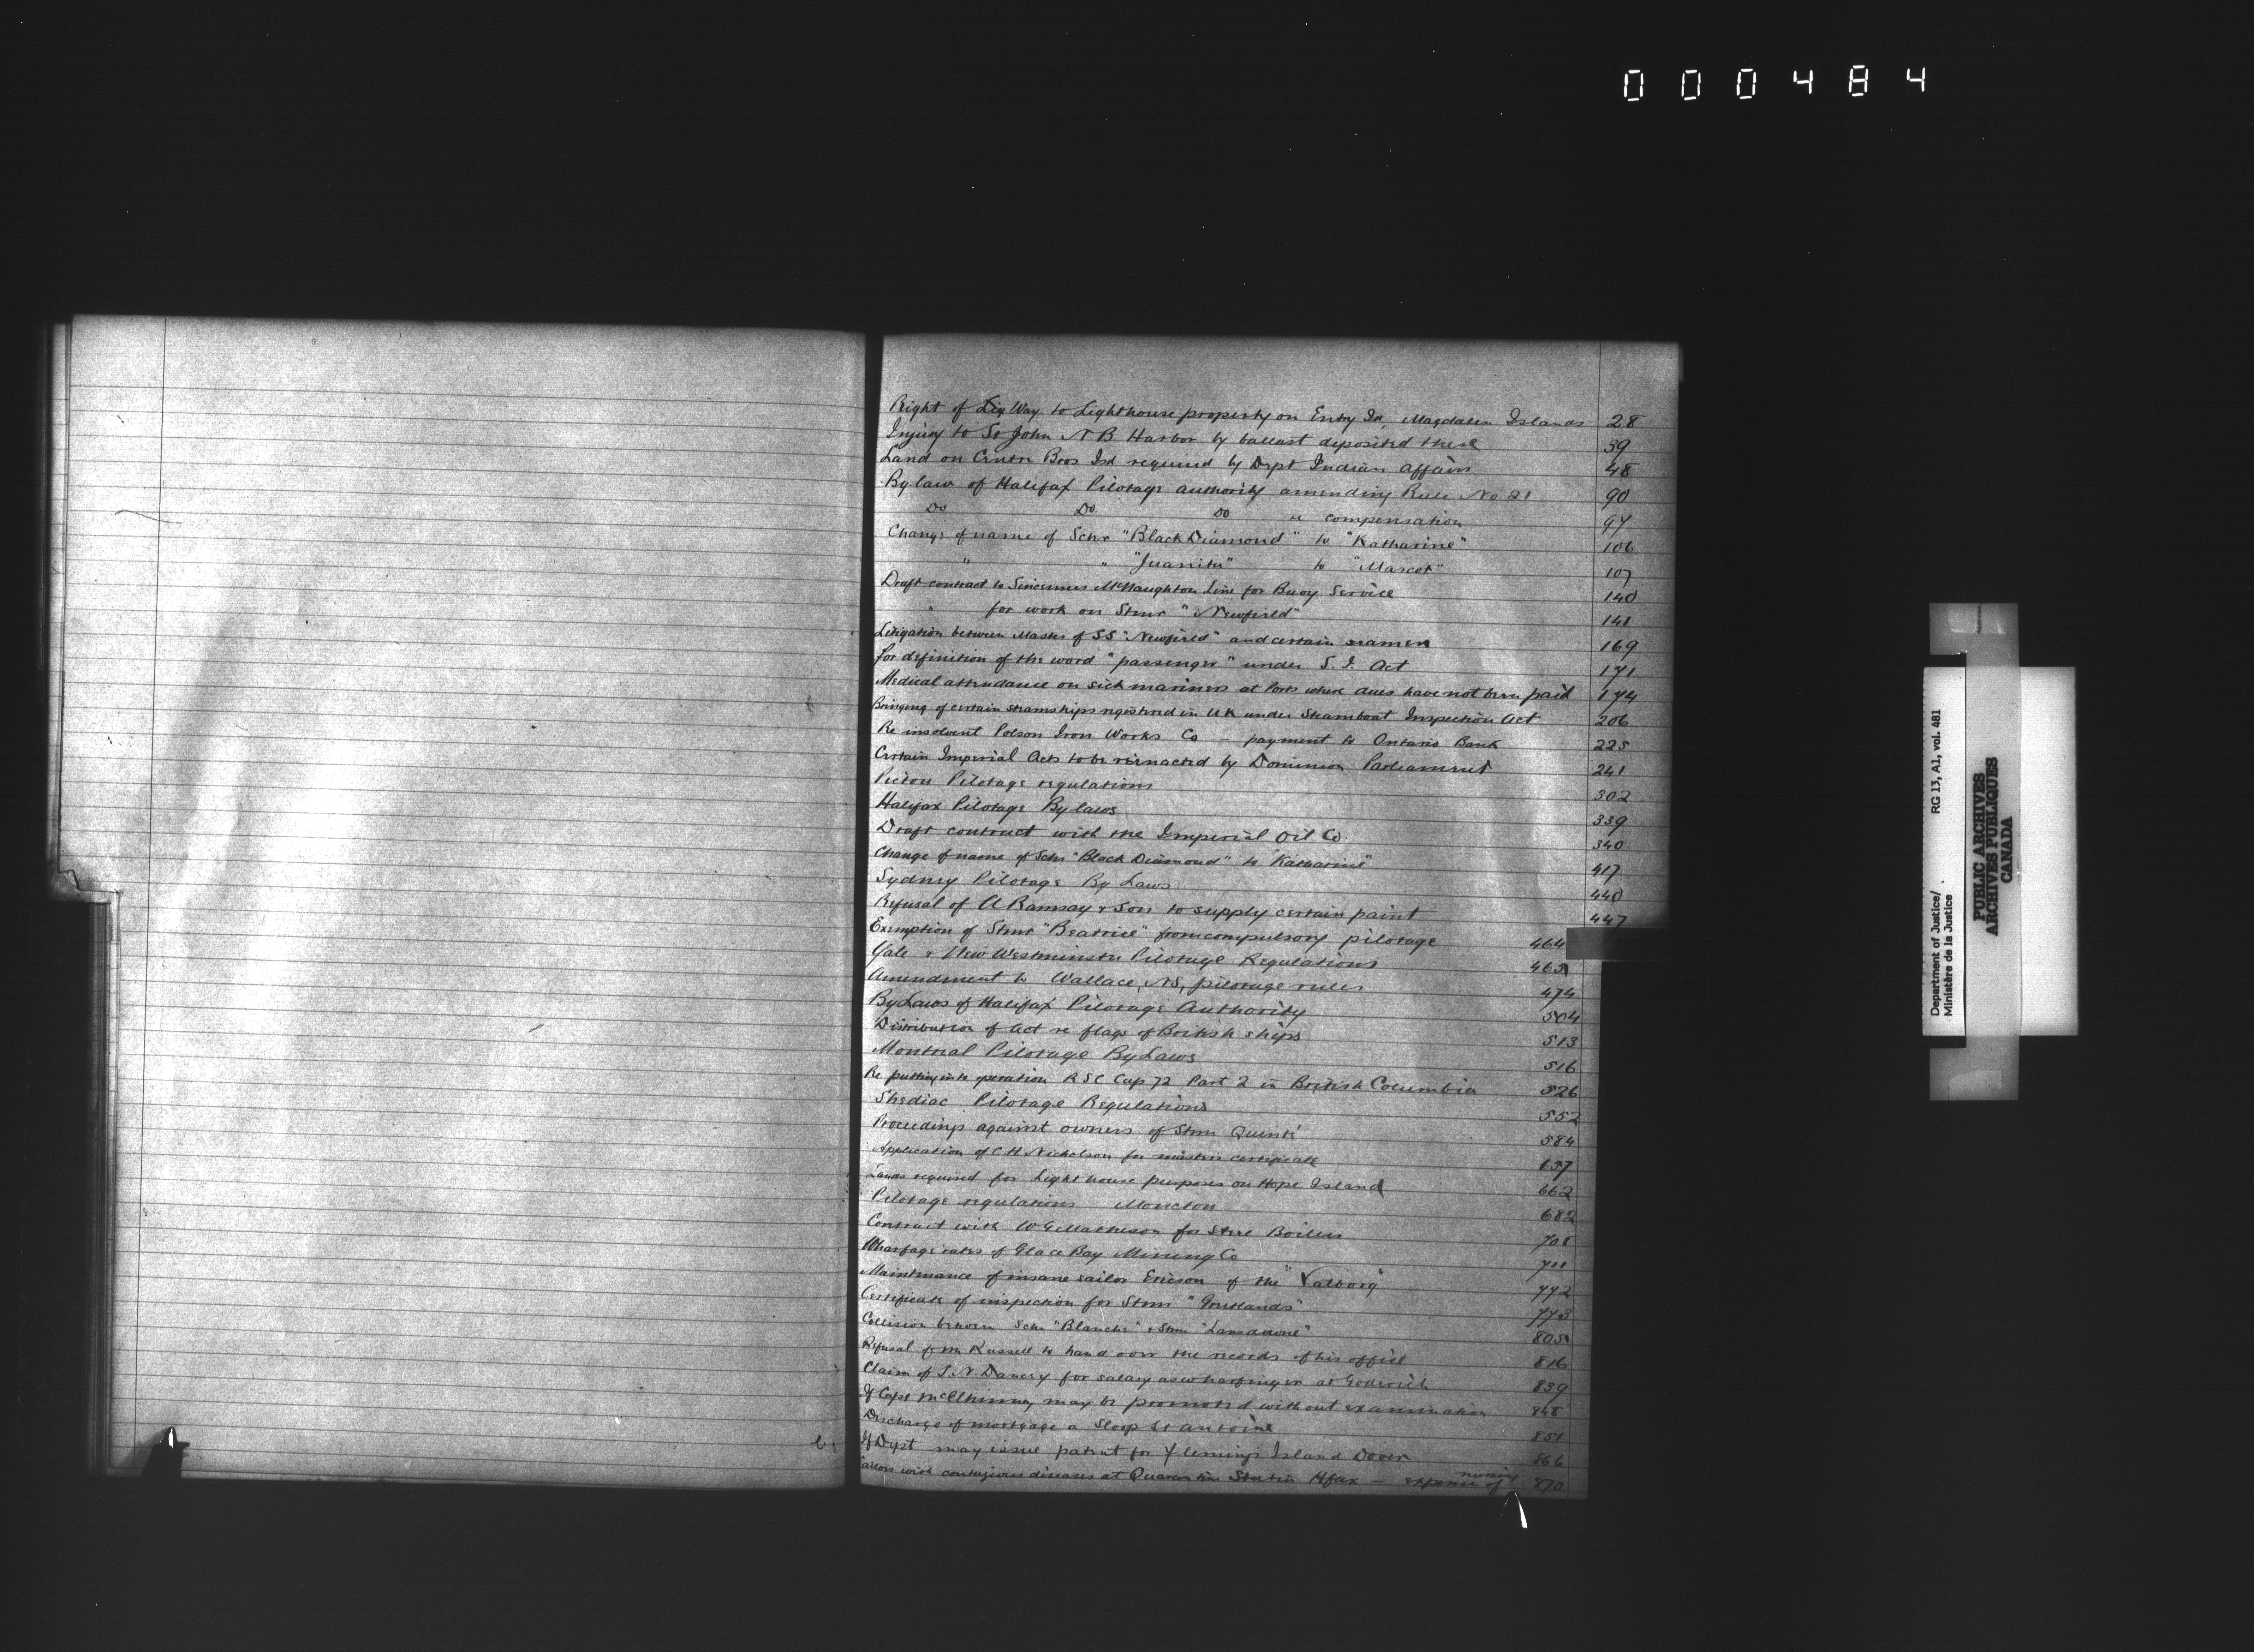 000484
Right of Way to Lighthouse property on Entry Isd, Magdalen Islands 28
Injury to St John N B Harbor by ballast deposited there 39
Land on Isd required by Dept Indian affairs 48
By law of Halifax Pilotage authority amending Rule No 21 90
Do Do Do re compensation 97
Change of name of Schr "Black Diamond" to "Katharine" 106
" " "Juanita" to "Mascot" 107
Draft contract to Sincennes McNaughton Line for Buoy Service 140
" for work on Stmr "Newfield" 141
Litigation between Master of SS "Newfield" and certain seamen 169
for definition of the word "passenger" under S. I. Act 171
Medical attendance on sick mariners at Ports where dues have not been paid 174
Bringing of certain steamships registered in U K under Steamboat Inspection Act 206
Re insolvent Polson Iron Works Co - payment to Ontario Bank 225
Certain Imperial Acts to be reenacted by Dominion Parliament 241
Pictou Pilotage regulations 302
Halifax Pilotage By laws 339
Draft contract with the Imperial Oil Co. 340
Change of name of Schr "Black Diamond" to "Katharine" 417
Sydney Pilotage By Laws 440
Refusal of A Ramsay & Son to supply certain paint 447
Exemption of Stmr "Beatrice" from compulsory pilotage 464
Yale & New Westminster Pilotage Regulations 465
Amendment to Wallace, NS, pilotage rules 474
By Laws of Halifax Pilotage Authority 504
Distribution of Act re flags of British ships 513
Montreal Pilotage By Laws 516
Re putting into operation R S C Cap 72 Part 2 in British Columbia 526
Shediac Pilotage Regulations 552
Proceedings against owners of Stmr 584
Application of C H Nicholson for masters certificate 657
Lands required for Light house purposes on Hope Island 662
Pilotage regulations Moncton 682
Contract with W G Matheson for Steel Boilers 708
Wharfage rates of Glace Bay Mining Co 711
Maintenance of insane sailor Ericson of the "Valborg" 772
Certificate of inspection for Stmr 773
Collision between Schr "Blanche" & Stmr "Lansdowne" 805
Refusal of Mr Russell to hand over the records of his office 816
Claim of S. N. Dancey for salary as wharfinger at Goderich 839
If Capt McElhinney may be promoted without examination 848
Discharge of mortgage a Sloop St Antoine 851
If Dept may issue patent for Flemings Island Dover 866
with contagious diseases at Quarantine Station Hfax - expense of nursing 870
Department of Justice/ RG 13, A1, vol. 481
Ministère de la Justice
PUBLIC ARCHIVES
ARCHIVES PUBLIQUES
CANADA